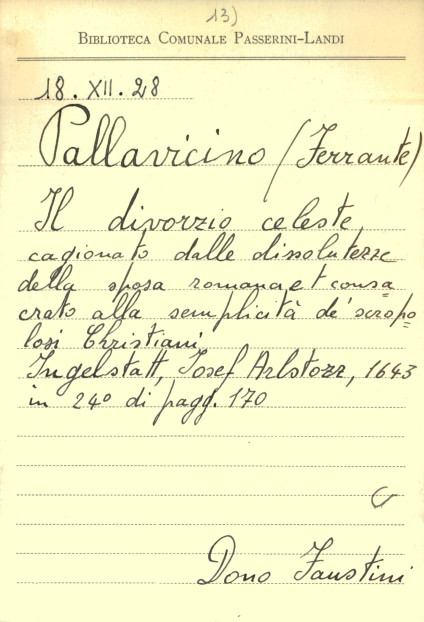 13)
BIBLIOTECA COMUNALE PASSERINI-LANDI
18. XII. 28
Pallavicino (Ferrante)
Il divorzio celeste
cagionato dalle dissolutezze
della sposa romana et consa
crato alla semplicità de' scropo
losi Christiani
Ingelstatt, Josef Arlstozz, 1643
in 24º di pagg. 170
Dono Faustini